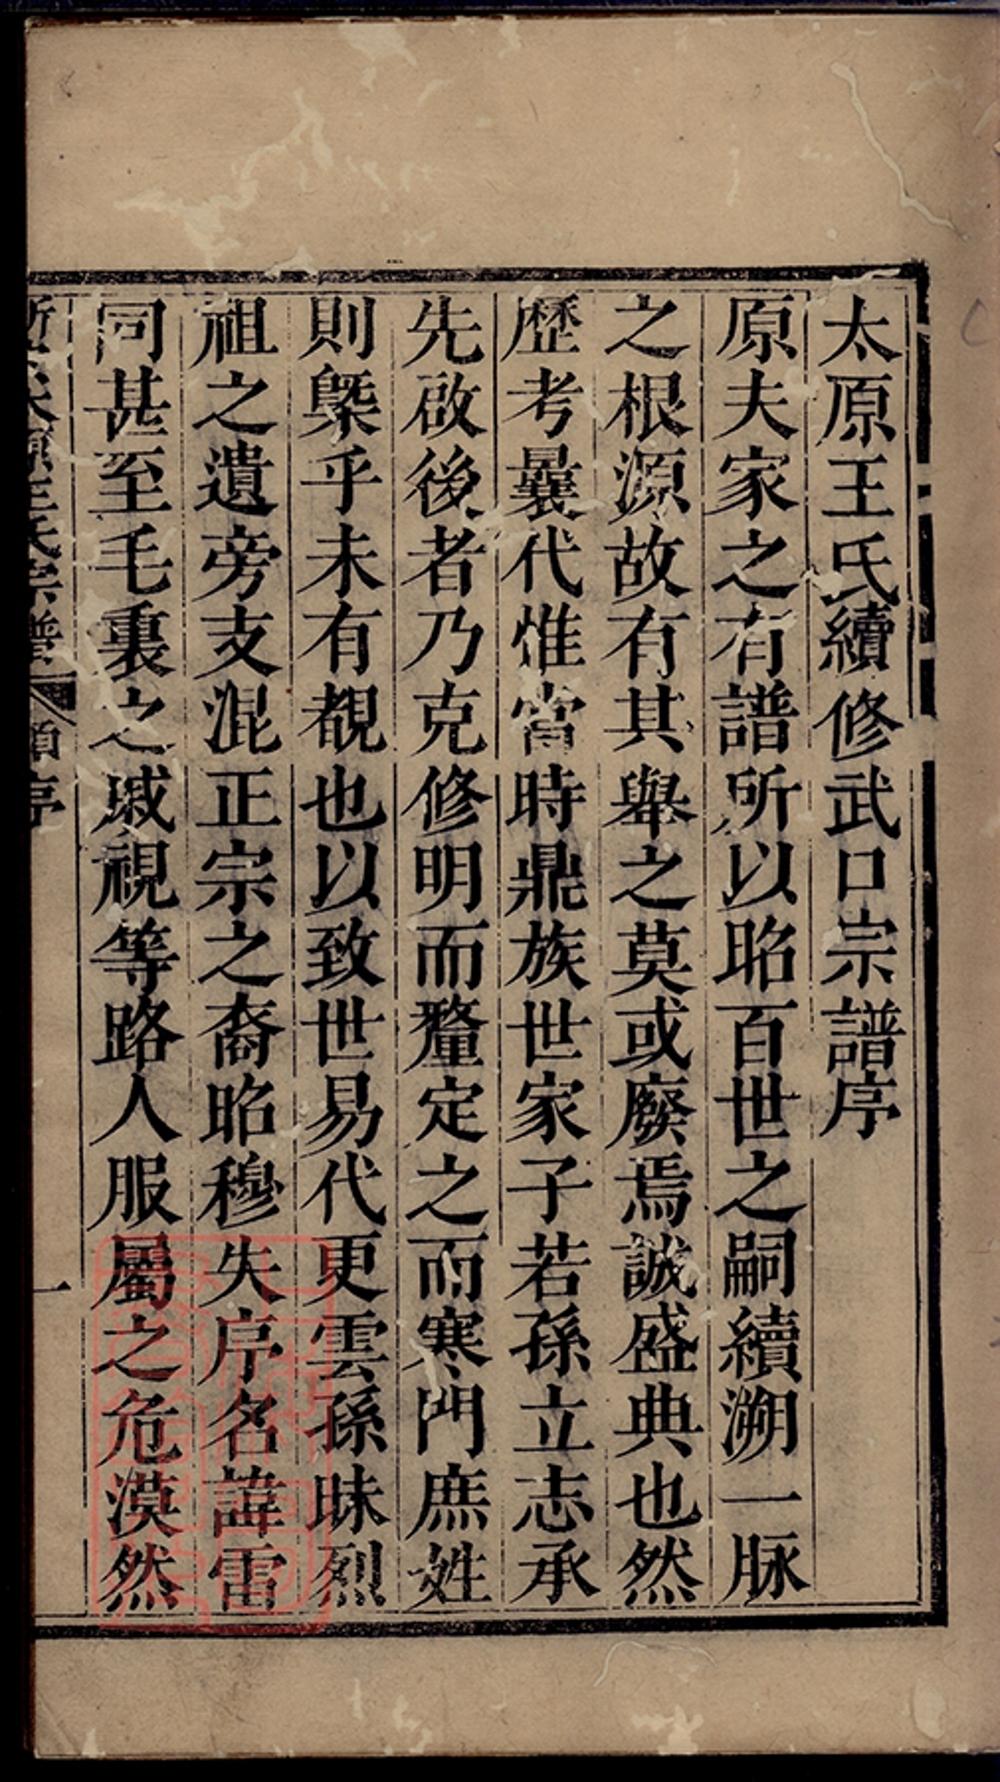 太原王氏續修武口宗譜序
原夫家之有譜所以昭百世之嗣續溯一脉
之根源故有其舉之莫或廢焉誠盛典也然
歷考曩代惟當時鼎族世家子若孫立志承
先啟後者乃克修明而釐定之而寒門庶姓
則槩乎未有覩也以致世易代更雲孫昧烈
祖之遺旁支混正宗之裔昭穆失序名諱雷
同甚至毛裏之戚視等路人服屬之危漠然
王氏宗譜
序
一